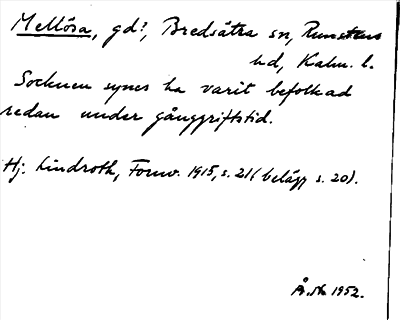 Mellösa, gd?, Bredsätra sn, Runstens
hd, Kalm. l.
Socknen synes ha varit befolkad
redan under gånggriftstid.
Hj. Lindroth, Fornv. 1915, s. 21 (belägg s. 20).
1952.